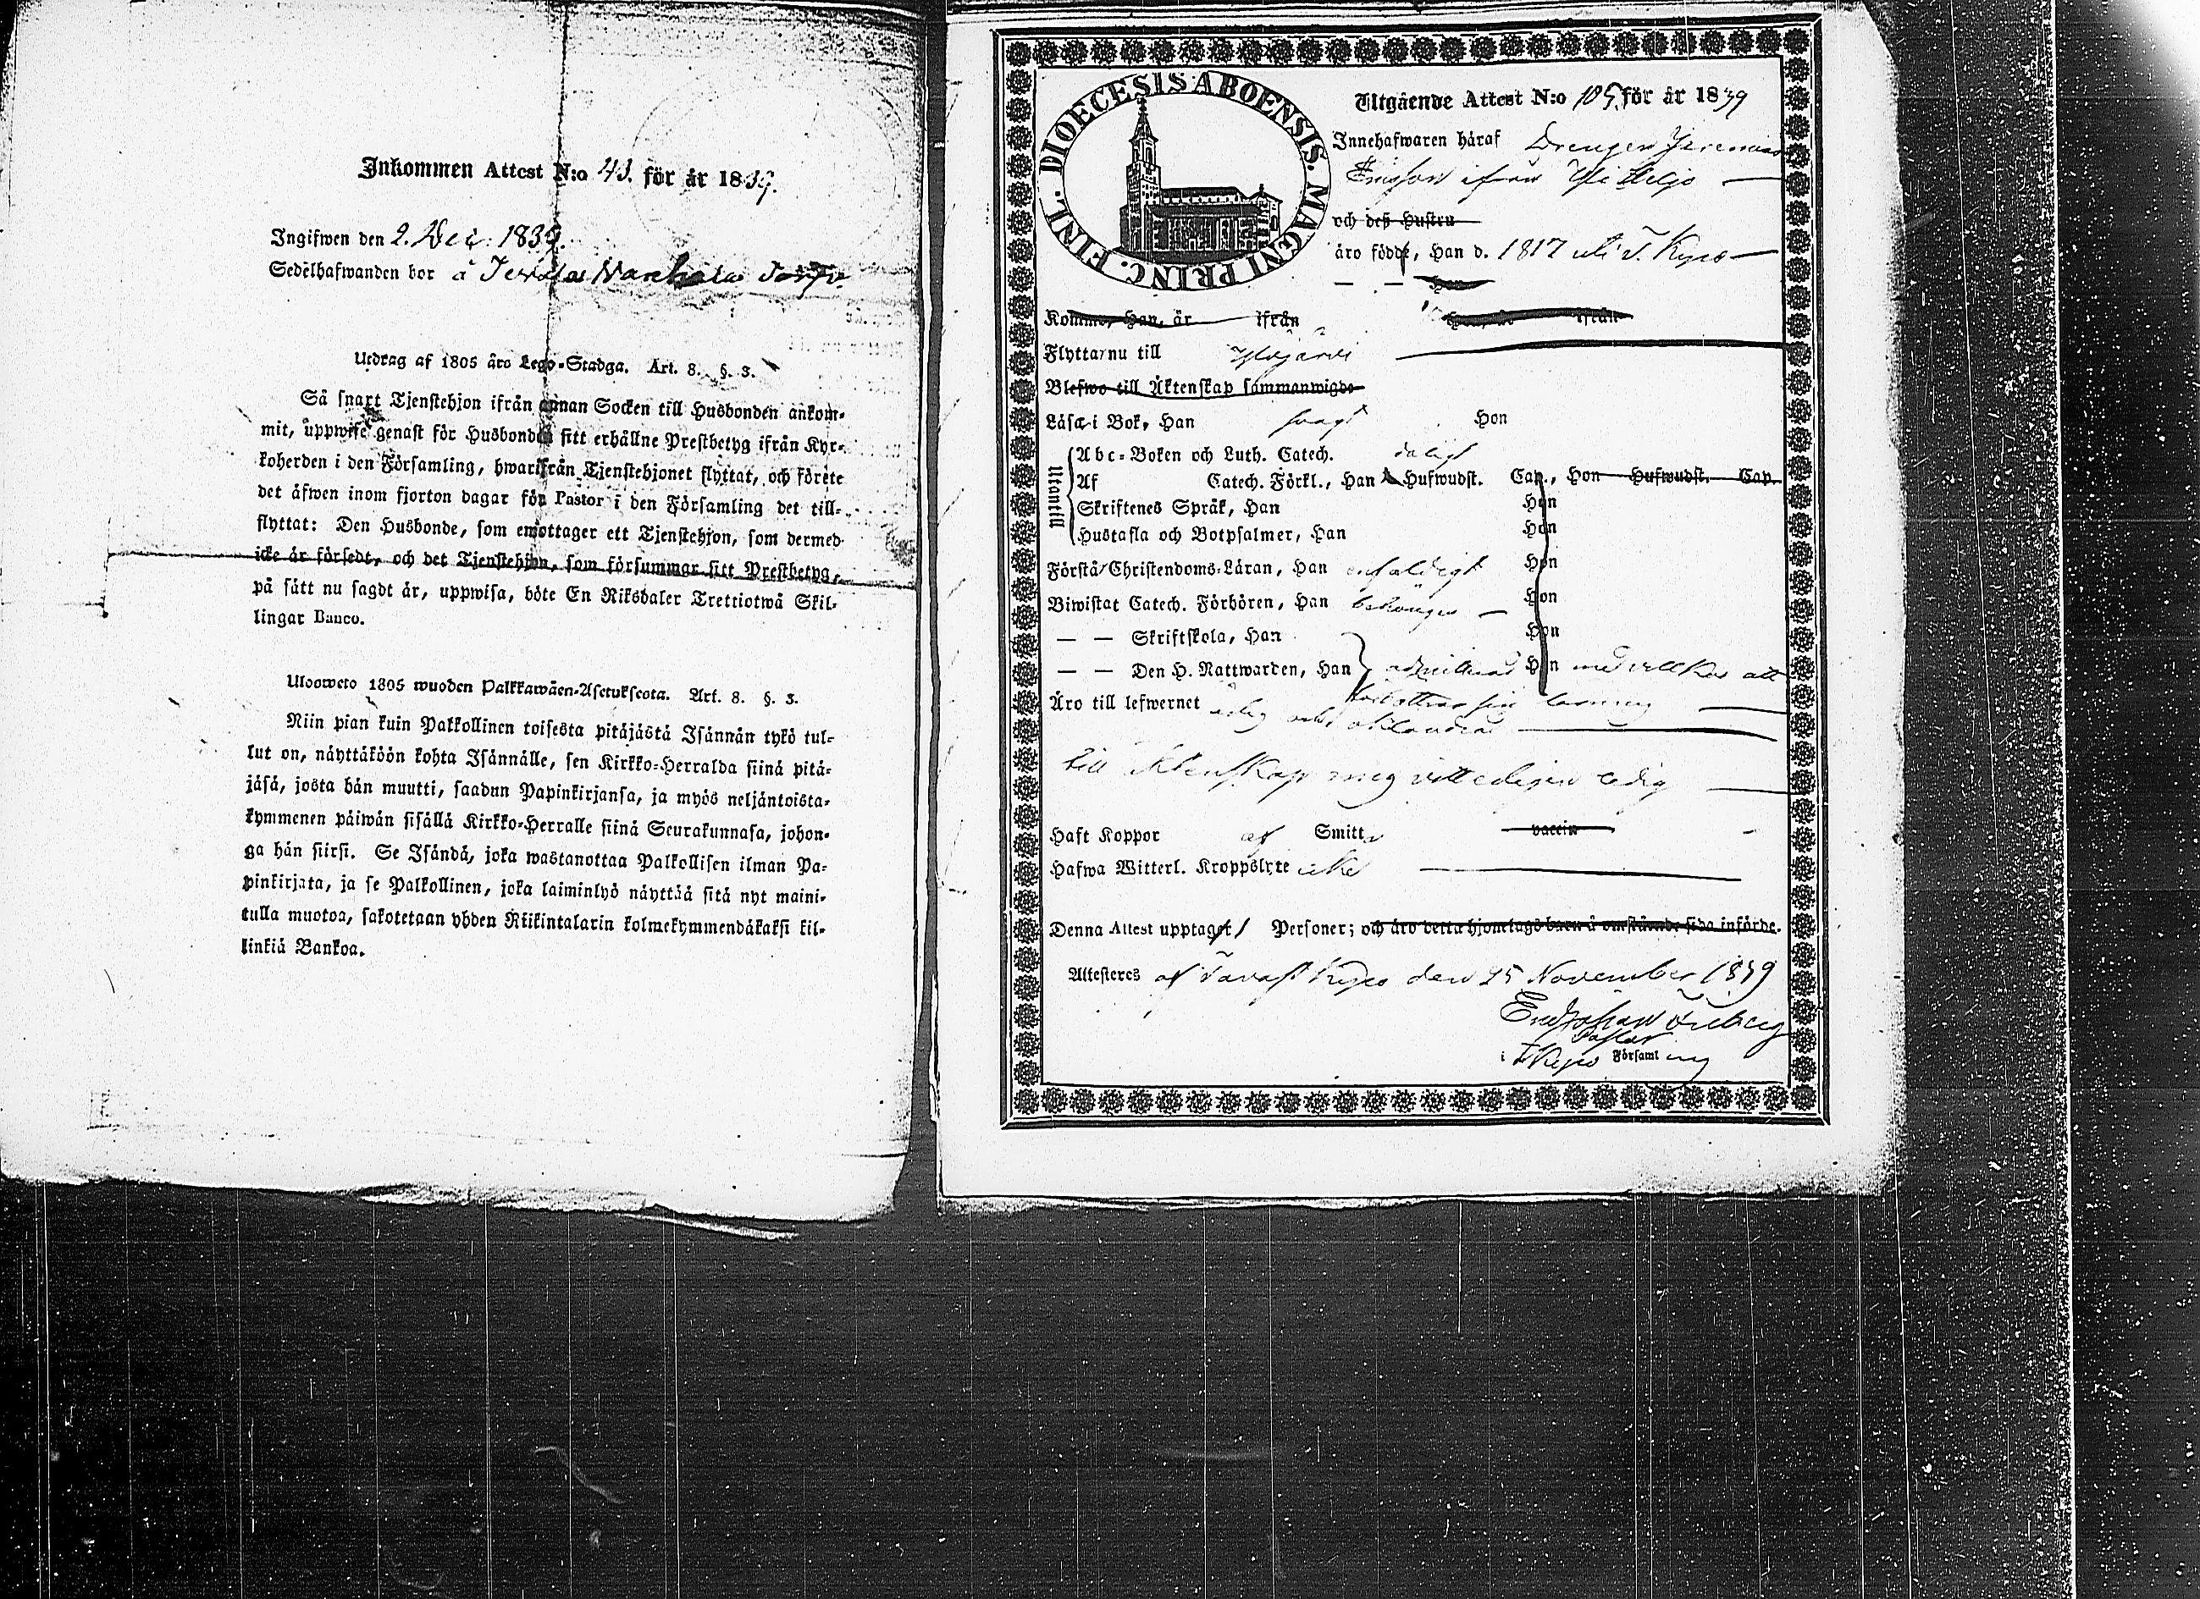 Inkommen Attest N:o 43. för år 1839.
Ingifwen den 2. Dec: 1839.
Sedelhafwanden bor å
Utdrag af 1805 års Lego-Stadga. Art. 8. §. 3.
Så snart Tjenstehjon ifrån annan Socken till Husbonden ankom-
mit, uppwise genast för Husbonden sitt erhållne Prestbetyg ifrån Kyr-
koherden i den Församling, hwarifrån Tjenstehjonet flyttat, och förete
det äfwen inom fjorton dagar för Pastor i den Församling det till-
flyttat: Den Husbonde, som emottager ett Tjenstehjon, som dermed
icke är försedt, och det Tjenstehjon, som försummar sitt Prestbetyg,
på sätt nu sagdt är, uppwisa, böte En Riksdaler Trettiotwå Skil-
lingar Banco.
Ulosweto 1805 wuoden Palkkawäen-Asetuksesta. Art. 8. §. 3.
Niin pian kuin Palkollinen toisesta pitäjästä Isännän tykö tul-
lut on, näyttäköön kohta Isännälle, sen Kirkko-Herralda siinä pitä-
jäsä, josta hän muutti, saadun Papinkirjansa, ja myös neljäntoista-
kymmenen päiwän sisällä Kirkko-Herralle siinä Seurakunnasa, johon-
ga hän siirsi. Se Isändä, joka wastanottaa Palkollisen ilman Pa-
pinkirjata, ja se Palkollinen, joka laiminlyö näyttää sitä nyt maini-
tulla muotoa, sakotetaan yhden Riikintalarin kolmekymmendäkaksi kil-
linkiä Bankoa.
FINL. DIOECESIS ABOENSIS. MAGNI PRINC.
Utgående Attest N:o 105. för år 1839
Innehafwaren häraf Drengen Jeremias
Ericsson ifrån
och deß Hustru
äro födde, Han d. 1817 uti T. Kyro
Komne, Han, år ifrån Hon, år ifrån
Flyttar nu till Ylöjärvi
Blefwo till Äktenskap sammanwigde
Läsa i Bok, Han svagt Hon
Utantill
Abc-Boken och Luth. Catech. dåligt
Af Catech. Förkl., Han Hufwudst. Cap., Hon Hufwudst. Cap.
Skriftenes Språk, Han Hon
Hustafla och Botpsalmer, Han Hon
Förstå Christendoms-Läran, Han enfaldigt Hon
Biwistat Catech. Förhören, Han behörigen Hon
— — Skriftskola, Han Hon
— — Den H. Nattwarden, Han admitterad Hon med villkor att
förbättra sin läsning
Äro till lefwernet ärlig och
till Äktenskap mig vitterligen ledig
Haft Koppor af Smitta vaccin
Hafwa Witterl. Kroppslyte icke
Denna Attest upptager 1 Personer; och äro detta hjonelags barn å omstående sida införde.
Attesteres af Tavast Kyro den 25 November 1839
Pastor
i T Kyro Församling